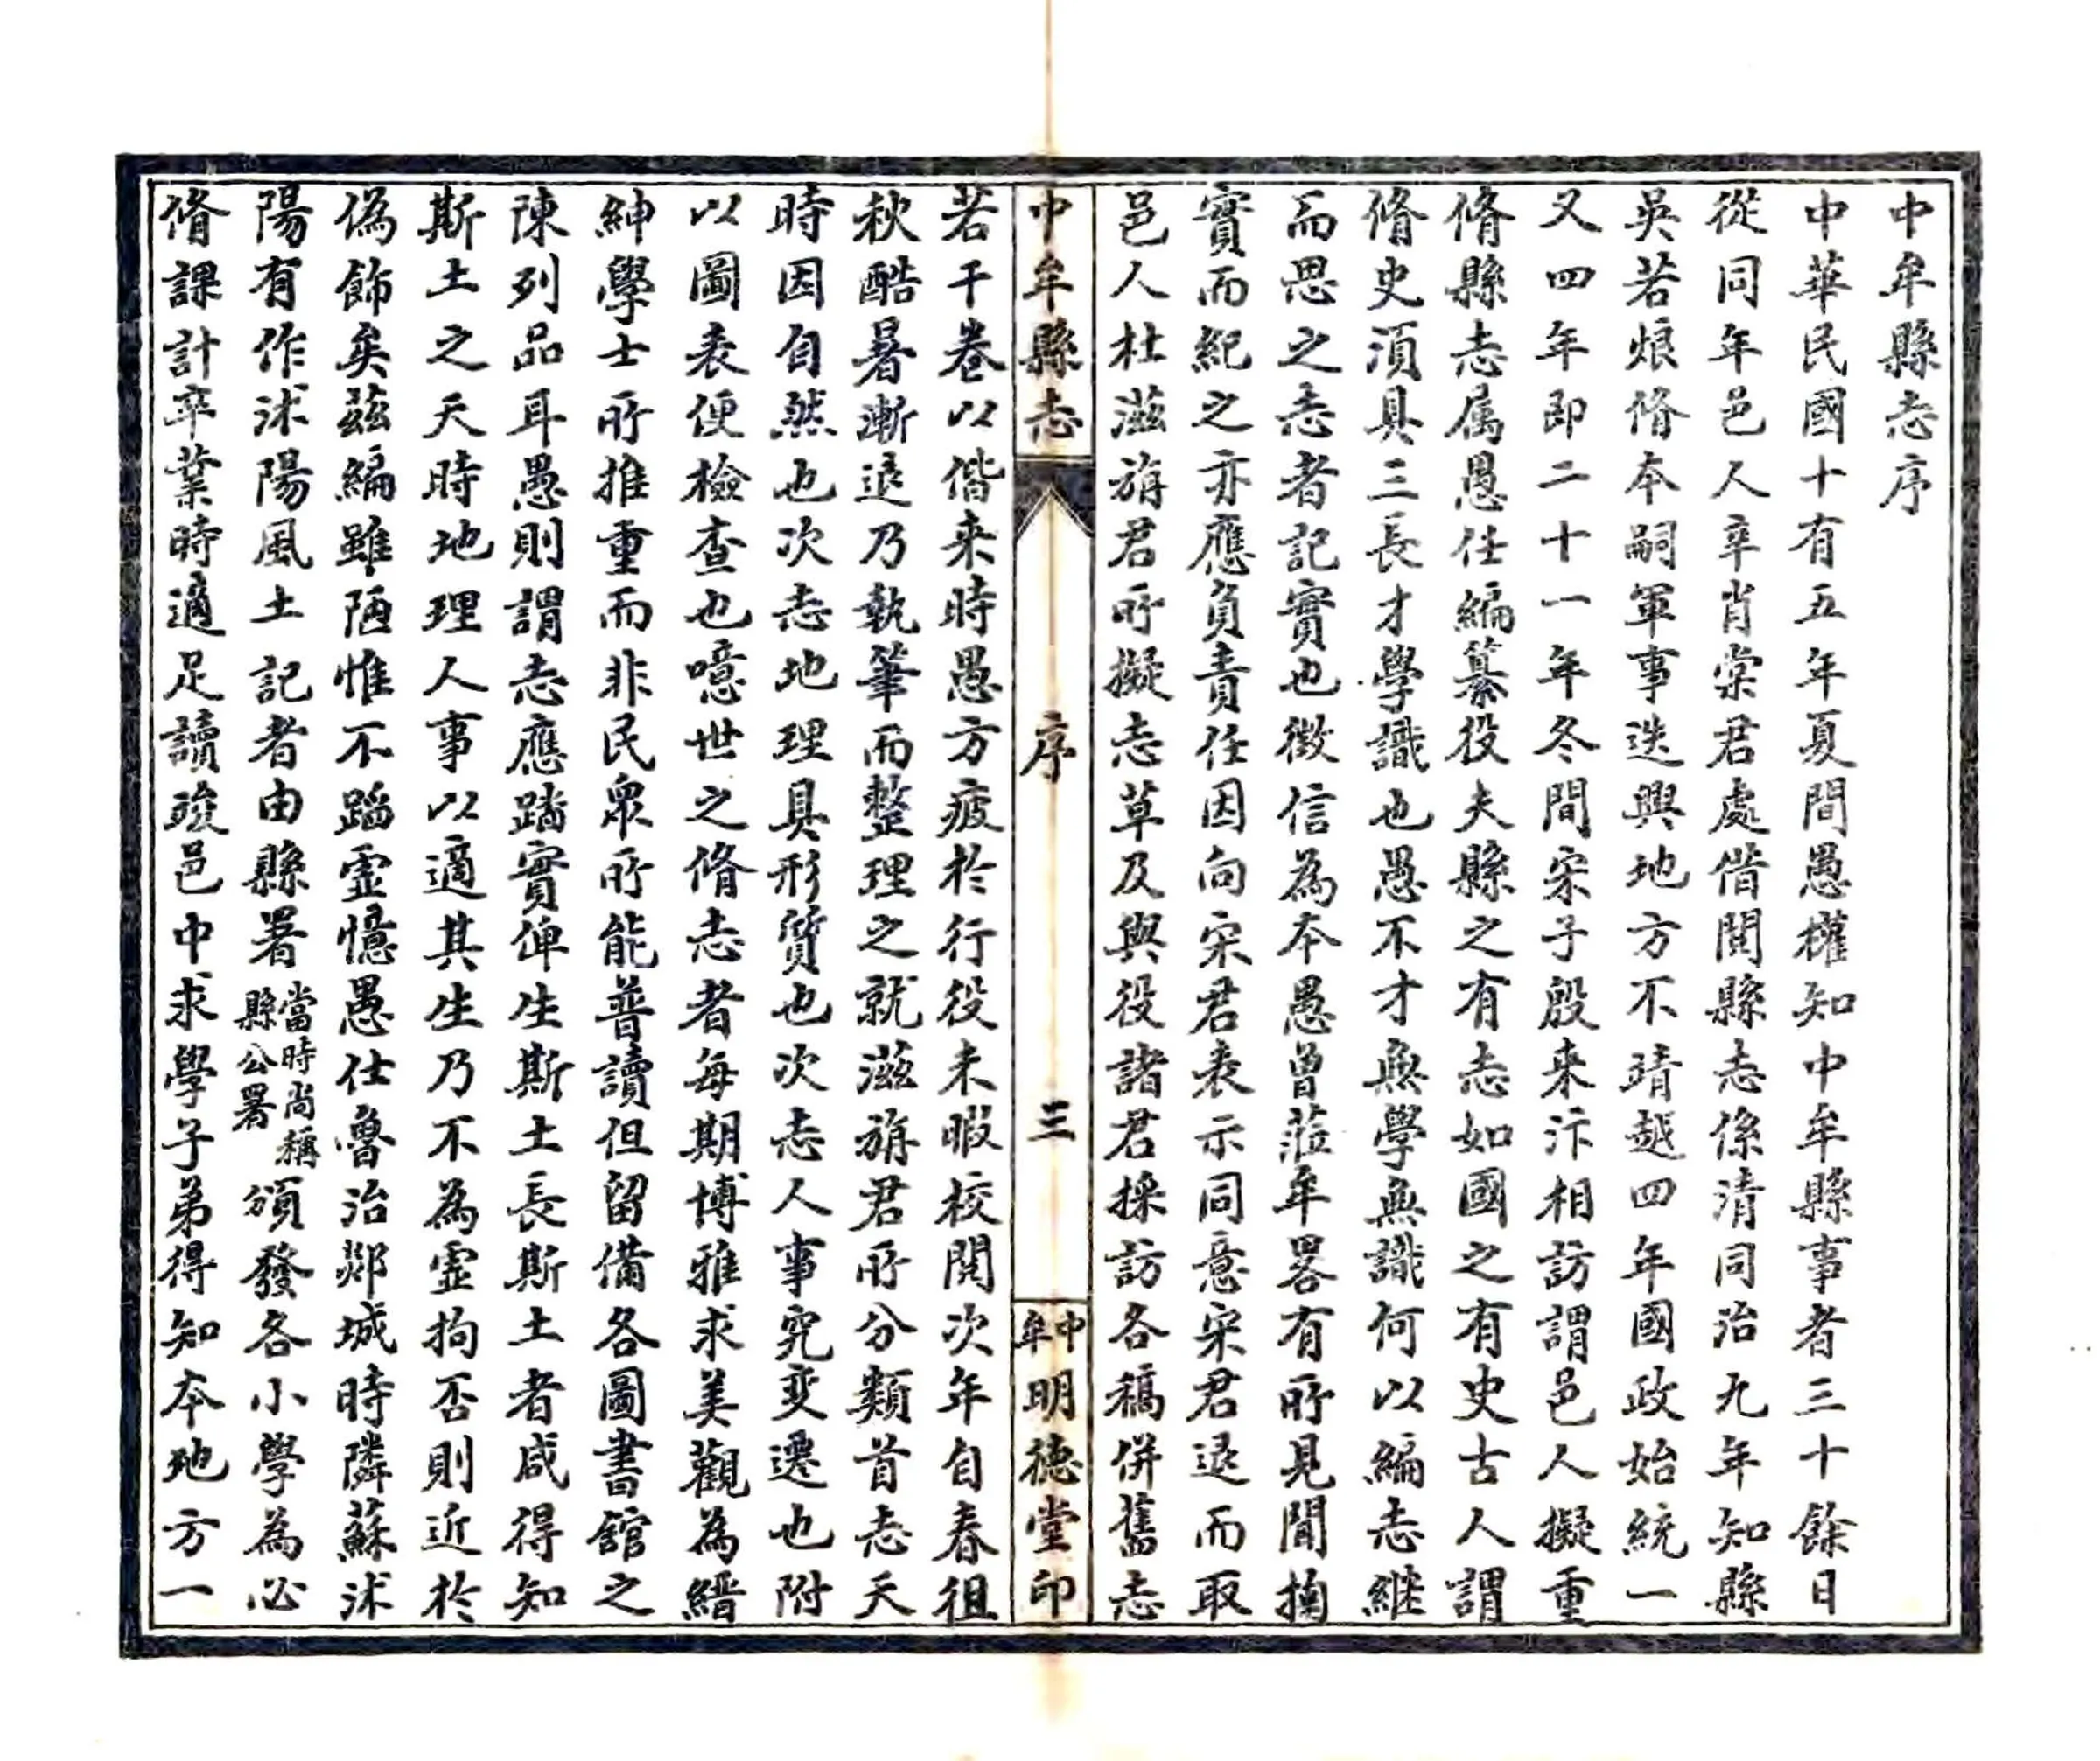 中牟縣志序
中華民國十有五年夏間愚權知中牟縣事者三十餘日
從同年邑人辛肖棠君處借閱縣志係清同治九年知縣
吳若烺脩本嗣軍事迭興地方不靖越四年國政始統一
又四年即二十一年冬間宋子殷来汴相訪謂邑人擬重
脩縣志属愚任編纂役夫縣之有志如國之有史古人謂
脩史須具三長才學識也愚不才無學無識何以編志継
而思之志者記實也徴信為本愚曾蒞牟畧有所見聞掬
實而紀之亦應負責任因向宋君表示同意宋君退而取
邑人杜滋旃君所擬志草及與役諸君採訪各稿併舊志
中牟縣志 序 三 中牟明德堂印
若干卷以偕来時愚方疲於行役未暇校閱次年自春徂
秋酷暑漸退乃執筆而整理之就滋旃君所分類首志天
時因自然也次志地理具形質也次志人事究变遷也附
以圖表便檢查也噫世之脩志者每期博雅求美觀為縉
紳學士所推重而非民眾所能普讀但留備各圖書舘之
陳列品耳愚則謂志應踏實俾生斯土長斯土者咸得知
斯土之天時地理人事以適其生乃不為虛拘否則近於
偽飾矣茲編雖陋惟不蹈虛憶愚仕魯治郯城時隣蘇沭
陽有作沭陽風土記者由縣署當時尚稱縣公署頒發各小學為必
脩課計卒業時適足讀竣邑中求學子弟得知本地方一